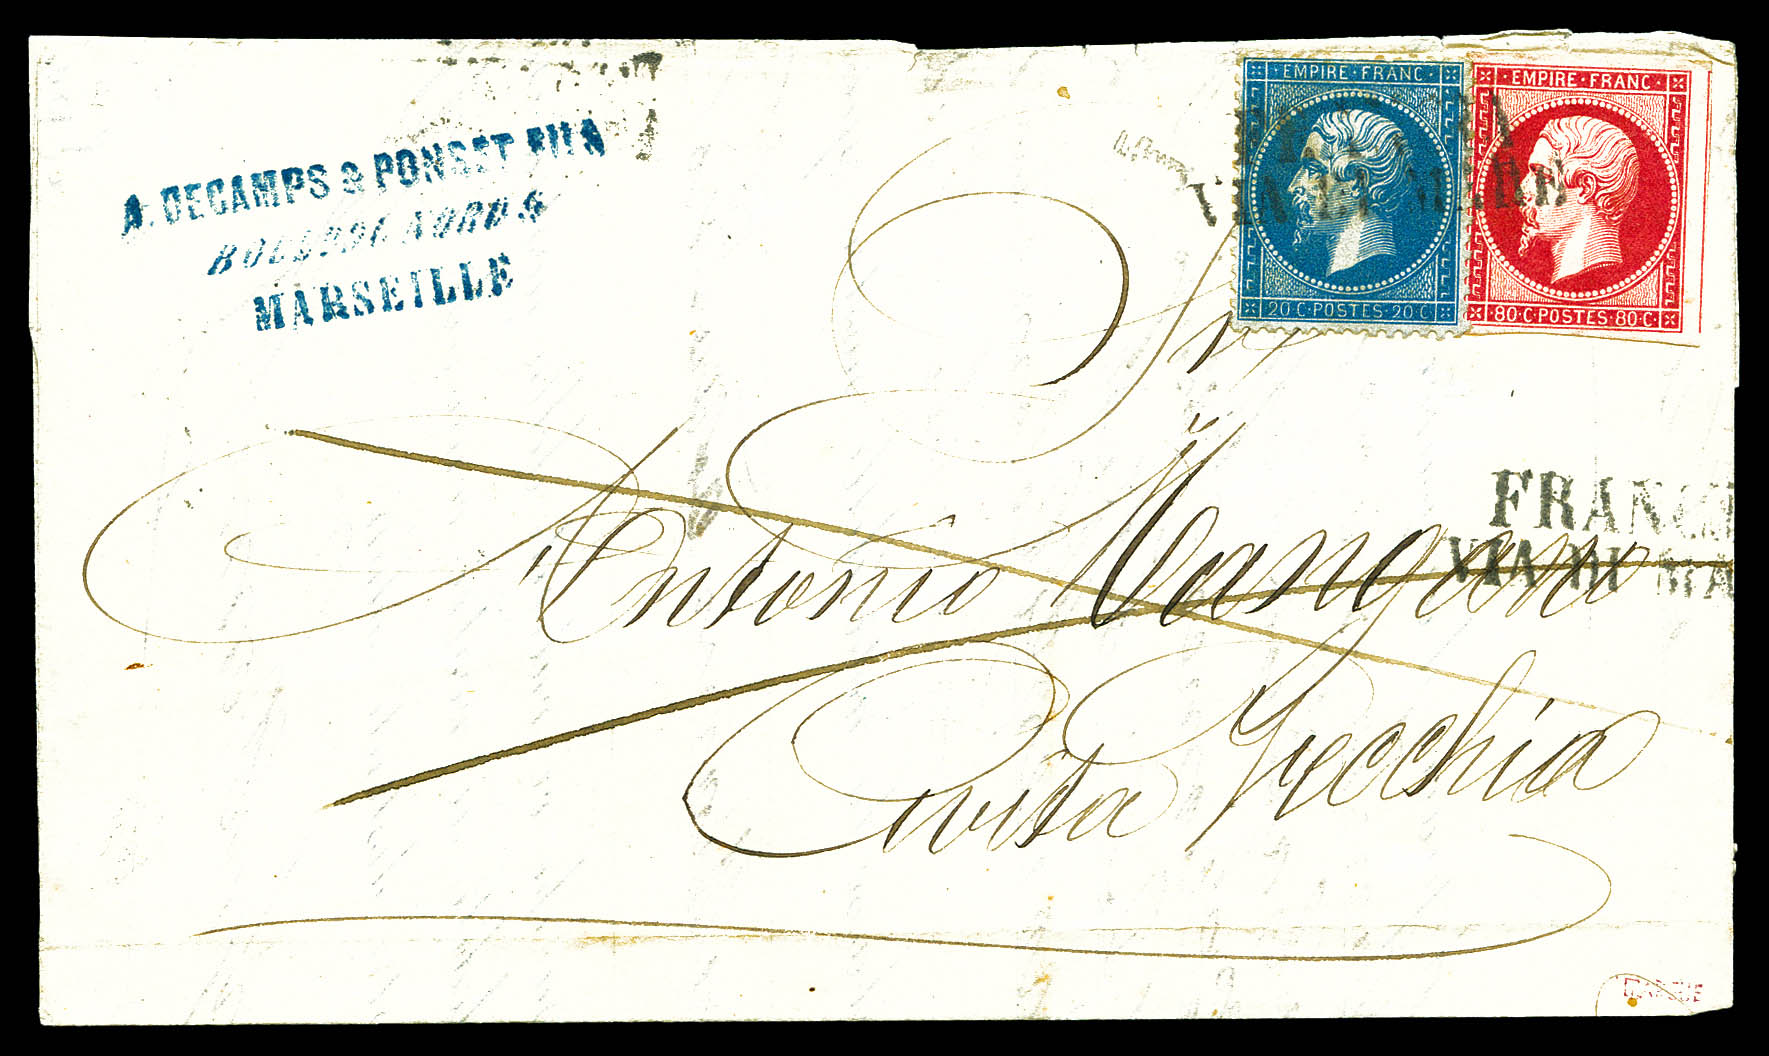 A. DECAMPS & PONSET FILS
MARSEILLE
EMPIRE · FRANC
20 · C · POSTES · 20 · C
EMPIRE · FRANC
80 · C · POSTES · 80 · C
VIA DI MARE
Sr
Antonio Mangano
Civita Vecchia
FRANC
VIA DI MA